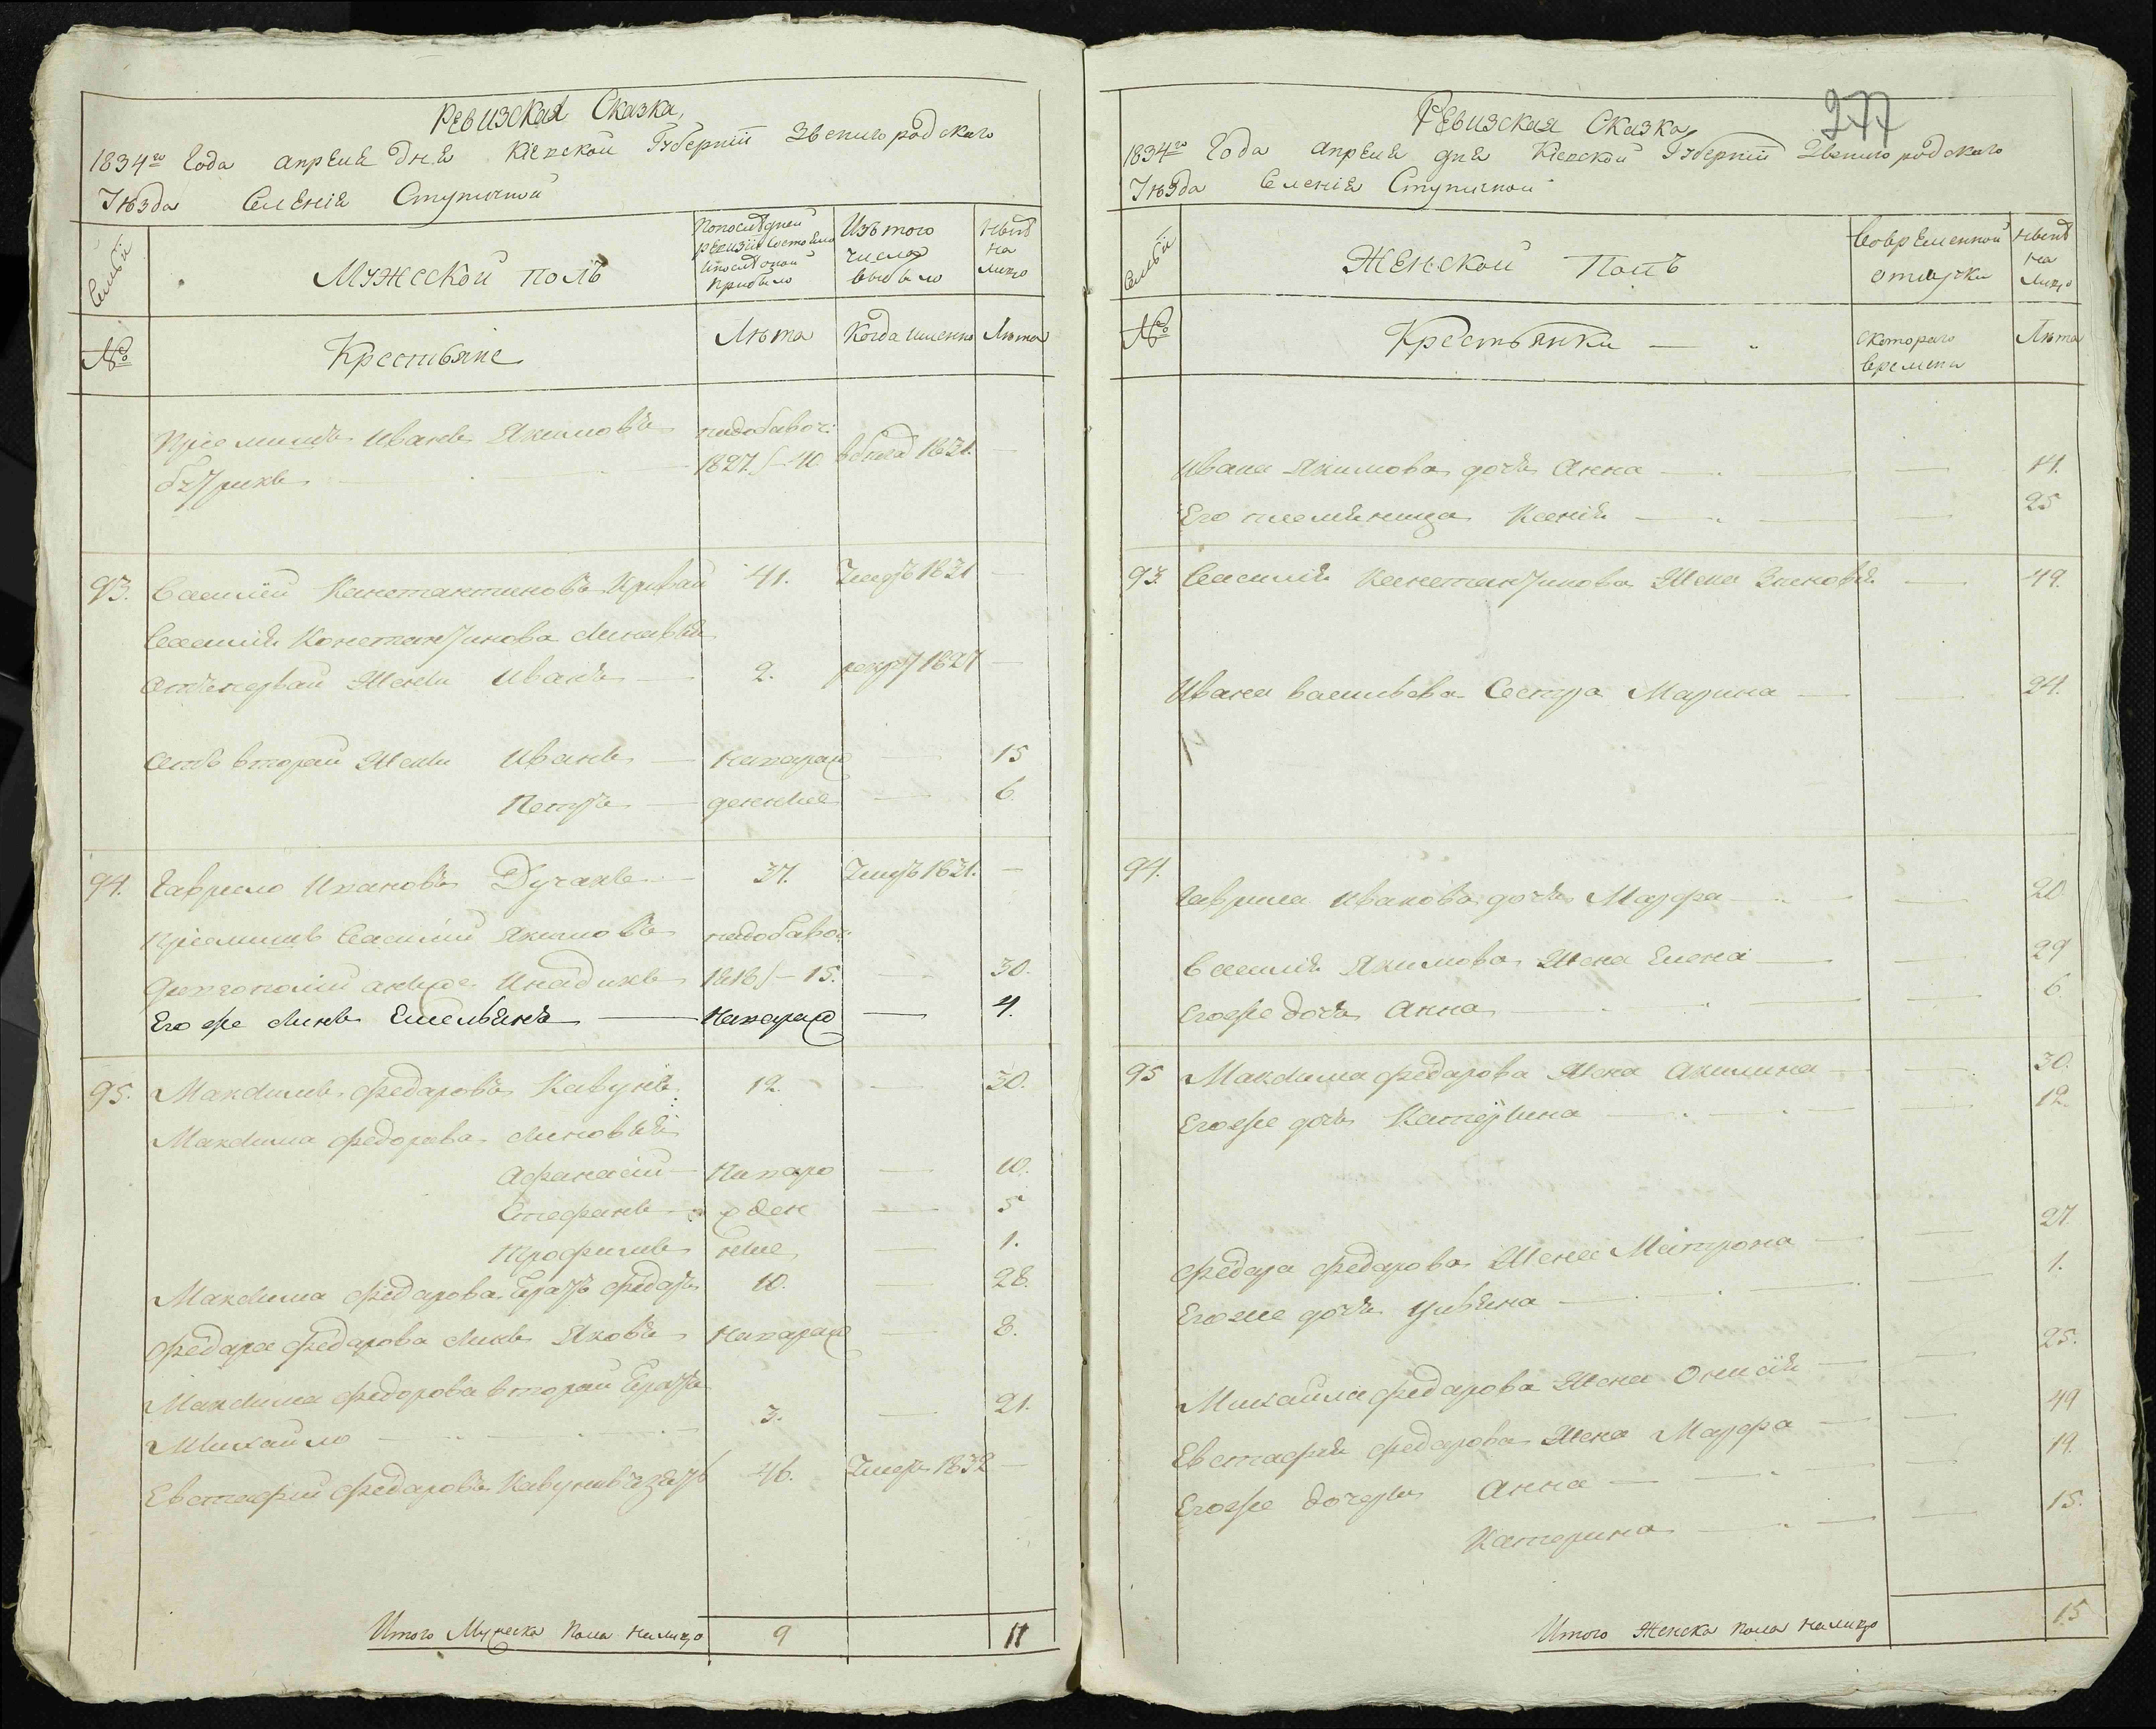 Ревизская Сказка,
1834го Года апреля дня Кіевской Губерніи Звенигородскаго
Уѣзда Селенія Ступичной
Семьи
Мужеской полъ
По последней ревизіи состояло и после оной прибыло
Изъ того числа выбыло
Нынѣ на лицо
№
Крестьяне
Лѣта
Когда именно
Лѣта
Пріемышъ Иванъ Якимовъ подобавоч:
1827/-40 1831. —
93. Василій Канстантиновъ Кривай 41. Умеръ 1831 —
Василія Константинова сыновья
Отъ первай жены Иванъ — 2. рекру 1827 —
Отъ втораи жены Иванъ — Напараж — 15
Петръ — денные — 6
94. Гаврило Ивановъ Дучакъ — 37. Умеръ 1831. —
Пріемышъ Василій Якимовъ подобавоч:
1818/-15. 30.
Его же сынъ Емельянъ — Напараж — 4.
95. Максимъ Федаровъ Кавунъ 12. — 30.
Максима Федорова сыновья
Афанасій — Нипаро — 10.
Стефанъ — жден — 5
Трофимъ ные — 1.
Максима Федарова братъ Федаръ 10. — 28.
Федара Федарова сынъ Яковъ Напараж — 8.
Максима Федорова второй братъ
Михайло — 3. — 21.
Евстафій Федаровъ Кавуновъ зять 46. Умеръ 1832 —
Итого Мужеска пола налицо 9 11
277
Ревизская Сказка
1834го Года апреля дня Кіевской Губерніи Звенигородскаго
Уѣзда Селенія Ступичной
Семьи
Женской Полъ
Во временной отлучки
Нынѣ на лицо
№
Крестьянки —
С котораго времени
Лѣта
Ивана Якимова дочь Анна — — 14.
Его племяница Ксенія — — 25
93. Василія Канстантинова жена Зиновія — 49.
Ивана Васильева Сестра Марина — — 24.
94.
Гаврила Иванова дочь Марфа — — 20
Василія Якимова жена Елена — — 29
Егоже дочь Анна — — 6
95 Максима Федарова жена Акилина — 30.
Егоже дочь Катерина — — 12.
Федара Федарова жена Матрона — — 27.
Егоже дочь Ульяна — — 1.
Михайла Федарова жена Онисія — — 25.
Евстафія Федарова жена Марфа — — 49
Егоже дочери Анна — — 19.
Катерина — — 15.
Итого Женска пола налицо 15